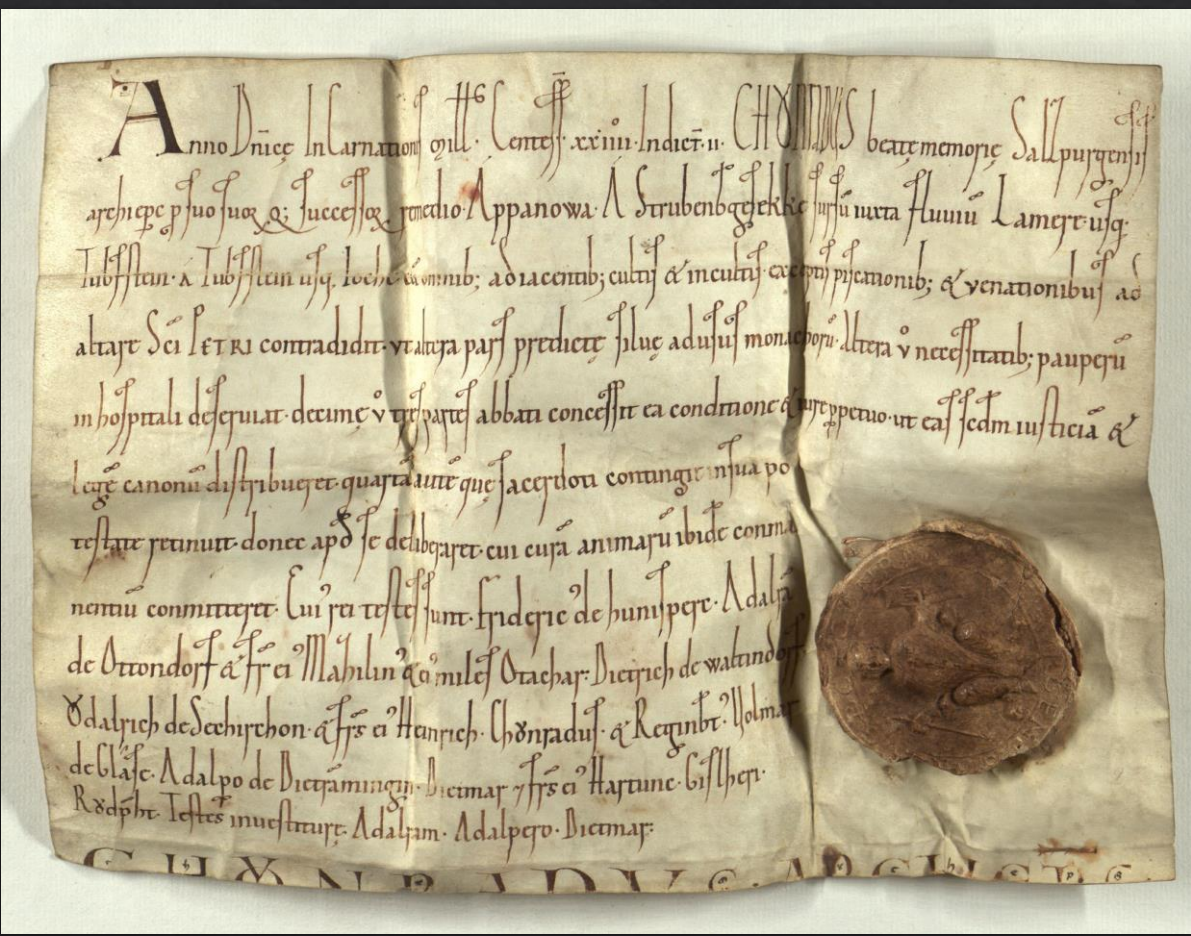 Anno Dn̄icę InCarnationis Mill. Centess̄. xxiiii. Indict̄. ii. CHVNRADVS beatę memorię Salzpurgensis
archiepc̄ p suo suorq; successor remedio. Appanowa. A Strubenbgesekke sursū iuxta fluuiū Lamere. usq.
Tubsstein. A Tubsstein usq. omnib; adiacentib; cultis & incultis. exceptis piscationib; & venationibus ad
altare Sc̄i PETRI contradidit. vt altera pars predictę siluę ad usus monachorū. Altera v̊ necessitatib; pauperū
in hospitali deseruiat. decimę v̊ tres partes abbati concessit ea conditione & iure ppetuo. ut eas scdm iusticiā &
legē canonū distribueret. quartā autē quę sacerdoti contingit in sua po
testate retinuit. donec apd se deliberaret. cui curā animarū ibidē conma
nentiū conmitteret. Cui rei testes sunt. frideric de hunsperc. Adalrā
de Ottondorf & fr̄ ei Mahilin & ei miles Otachar. Dietrich de waltindorf
Vͦdalrich de Sechirchon. & fr̄s ei Heinrich. Chͦvnradus. & Reginbt. Uolmar
de Glase. Adalpo de Dietrāmingin. Dietmar 7 fr̄s ei Hartunc. Gislheri.
Rͦvdpht. Testes inuestiturę. Adalram. Adalpero. Dietmar.
CHVͦNRADVS. ARCHIEPS